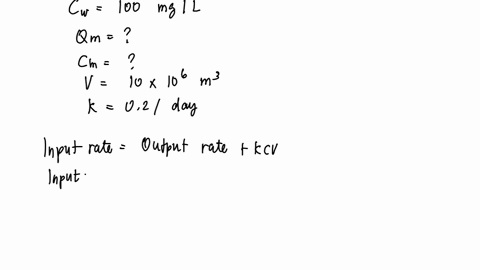 Cw = 100 mg/L
Qm = ?
Cm = ?
V = 10 x 10⁶ m³
k = 0.2/ day
Input rate = Output rate + kcv
Input.